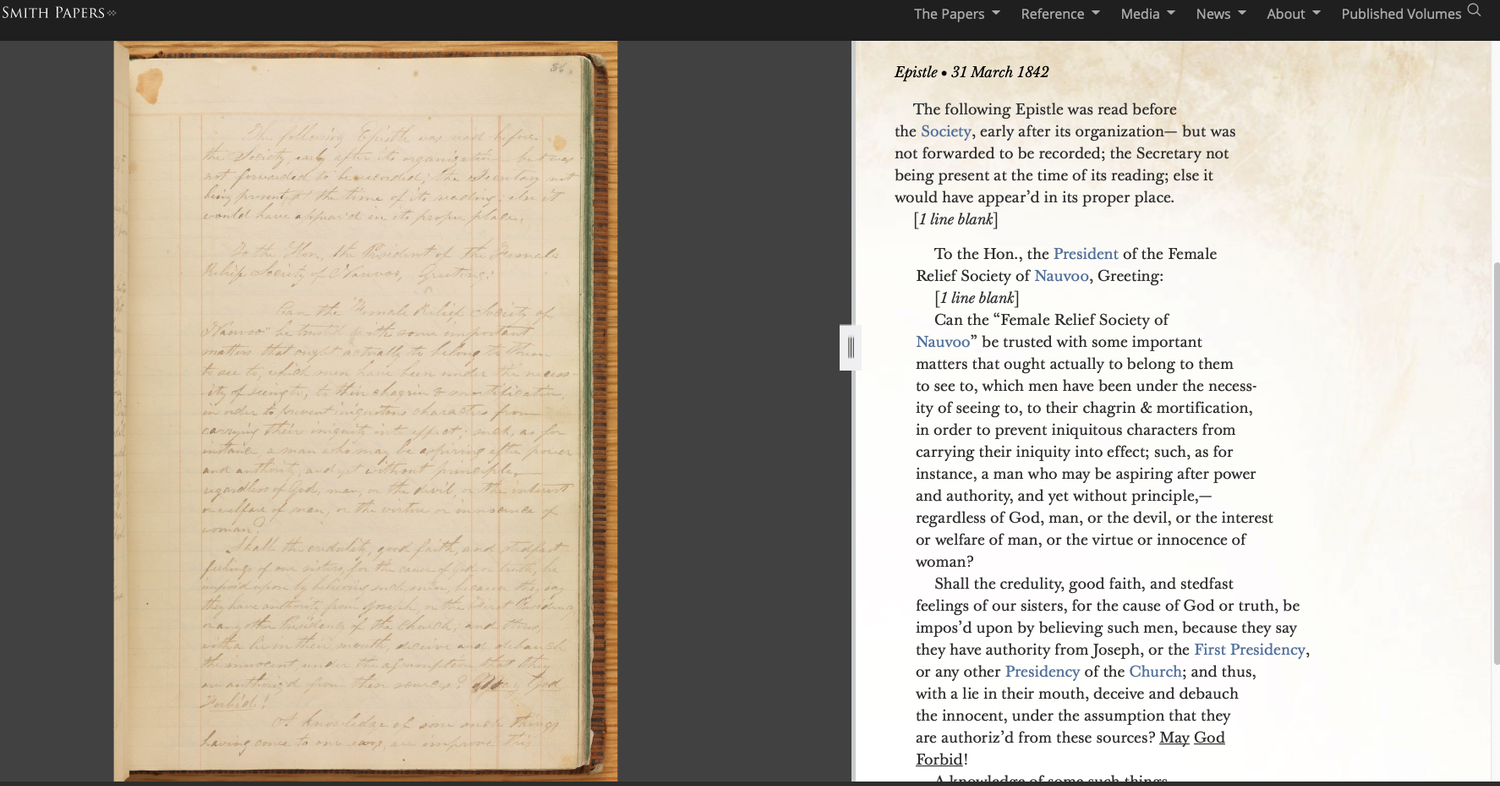 SMITH PAPERS
The Papers
Reference
Media
News
About
Published Volumes
86.
The following Epistle was read before
the Society, early after its organization— but was
not forwarded to be recorded; the Secretary not
being present at the time of its reading; else it
would have appear'd in its proper place.
To the Hon., the President of the Female
Relief Society of Nauvoo, Greeting:
Can the "Female Relief Society of
Nauvoo" be trusted with some important
matters that ought actually to belong to them
to see to, which men have been under the necess-
ity of seeing to, to their chagrin & mortification,
in order to prevent iniquitous characters from
carrying their iniquity into effect; such, as for
instance, a man who may be aspiring after power
and authority, and yet without principle,—
regardless of God, man, or the devil, or the interest
or welfare of man, or the virtue or innocence of
woman?
Shall the credulity, good faith, and stedfast
feelings of our sisters, for the cause of God or truth, be
impos'd upon by believing such men, because they say
they have authority from Joseph, or the First Presidency,
or any other Presidency of the Church; and thus,
with a lie in their mouth, deceive and debauch
the innocent, under the assumption that they
are authoriz'd from these sources? May God
Forbid!
A knowledge of some such things
having come to our ears, we improve this
Epistle • 31 March 1842
The following Epistle was read before
the Society, early after its organization— but was
not forwarded to be recorded; the Secretary not
being present at the time of its reading; else it
would have appear’d in its proper place.
[1 line blank]
To the Hon., the President of the Female
Relief Society of Nauvoo, Greeting:
[1 line blank]
Can the “Female Relief Society of
Nauvoo” be trusted with some important
matters that ought actually to belong to them
to see to, which men have been under the necess-
ity of seeing to, to their chagrin & mortification,
in order to prevent iniquitous characters from
carrying their iniquity into effect; such, as for
instance, a man who may be aspiring after power
and authority, and yet without principle,—
regardless of God, man, or the devil, or the interest
or welfare of man, or the virtue or innocence of
woman?
Shall the credulity, good faith, and stedfast
feelings of our sisters, for the cause of God or truth, be
impos’d upon by believing such men, because they say
they have authority from Joseph, or the First Presidency,
or any other Presidency of the Church; and thus,
with a lie in their mouth, deceive and debauch
the innocent, under the assumption that they
are authoriz’d from these sources? May God
Forbid!
A knowledge of some such things